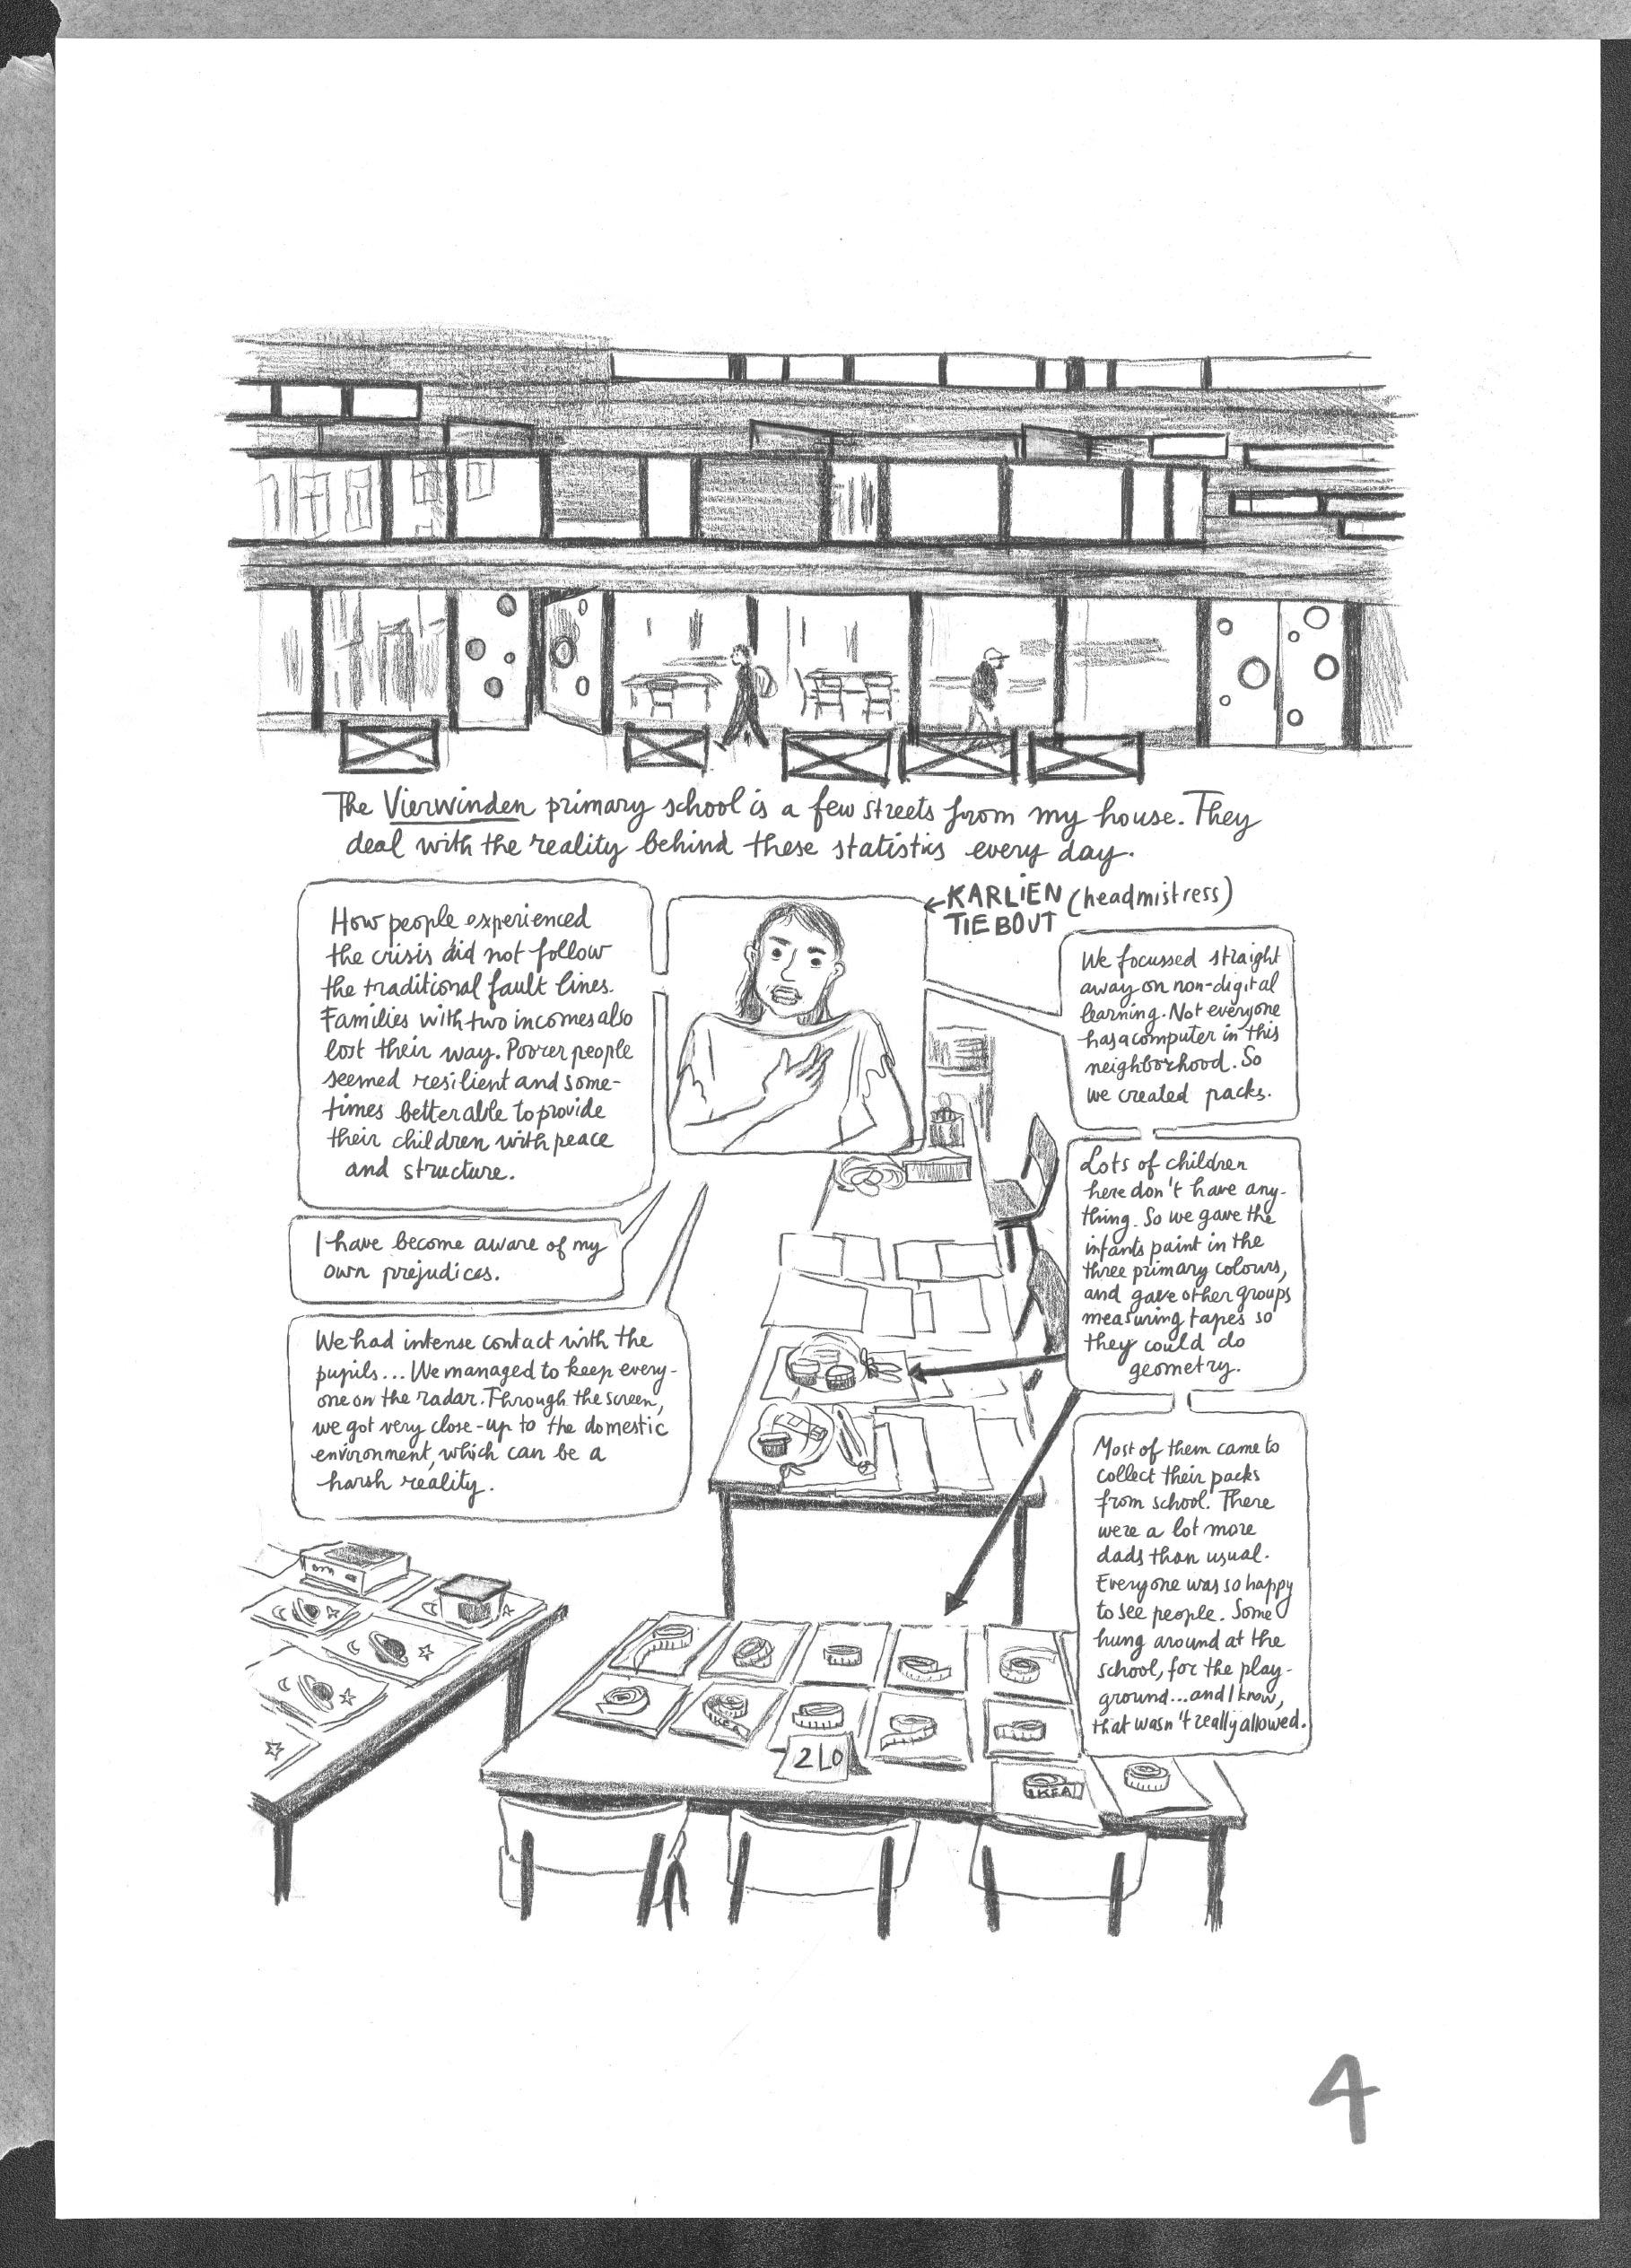 The Vierwinden primary school is a few streets from my house. They
deal with the reality behind these statistics every day.
KARLIEN (headmistress)
TIEBOUT
How people experienced
the crisis did not follow
the traditional fault lines.
Families with two incomes also
lost their way. Poorer people
seemed resilient and some-
times better able to provide
their children with peace
and structure.
I have become aware of my
own prejudices.
We had intense contact with the
pupils... We managed to keep every-
one on the radar. Through the screen,
we got very close-up to the domestic
environment, which can be a
harsh reality.
We focussed straight
away on non-digital
learning. Not everyone
has a computer in this
neighborhood. So
we created packs.
Lots of children
here don't have any-
thing. So we gave the
infants paint in the
three primary colours,
and gave other groups
measuring tapes so
they could do
geometry.
Most of them came to
collect their packs
from school. There
were a lot more
dads than usual.
Everyone was so happy
to see people. Some
hung around at the
school, for the play-
ground...and I know,
that wasn't really allowed.
IKEA
2LO
IKEA
4